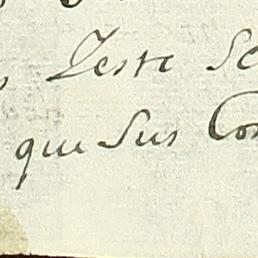 Zeste Se
que Sus Con